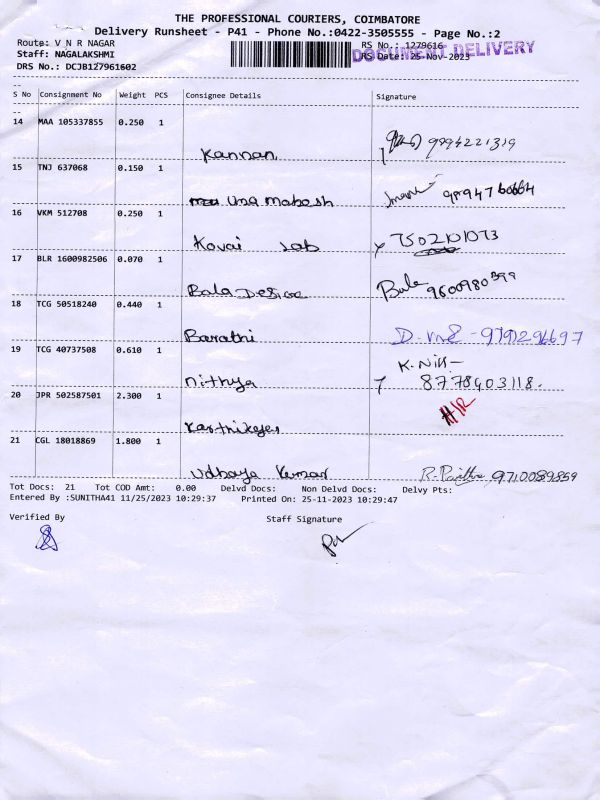 THE PROFESSIONAL COURIERS, COIMBATORE
Delivery Runsheet - P41 - Phone No.:0422-3505555 - Page No.:2
Route: V N R NAGAR RS No.: 1279616
DOCUMENT DELIVERY
Staff: NAGALAKSHMI RS Date: 25-Nov-2023
DRS No.: DCJB127961602
S No Consignment No Weight PCS Consignee Details Signature
14 MAA 105337855 0.250 1
Kannan 9994221319
15 TNJ 637068 0.150 1
Uma Mahesh
16 VKM 512708 0.250 1
Kovai Lab 7502101073
17 BLR 1600982506 0.070 1
Bala Desige Bala 9600980399
18 TCG 50518240 0.440 1
Barathi 9791296697
19 TCG 40737508 0.610 1
Nithya 8778403118.
20 JPR 502587501 2.300 1
Karthikeyen
21 CGL 18018869 1.800 1
Udhaya Kumar 9710089859
Tot Docs: 21 Tot COD Amt: 0.00 Delvd Docs: Non Delvd Docs: Delvy Pts:
Entered By :SUNITHA41 11/25/2023 10:29:37 Printed On: 25-11-2023 10:29:47
Verified By Staff Signature